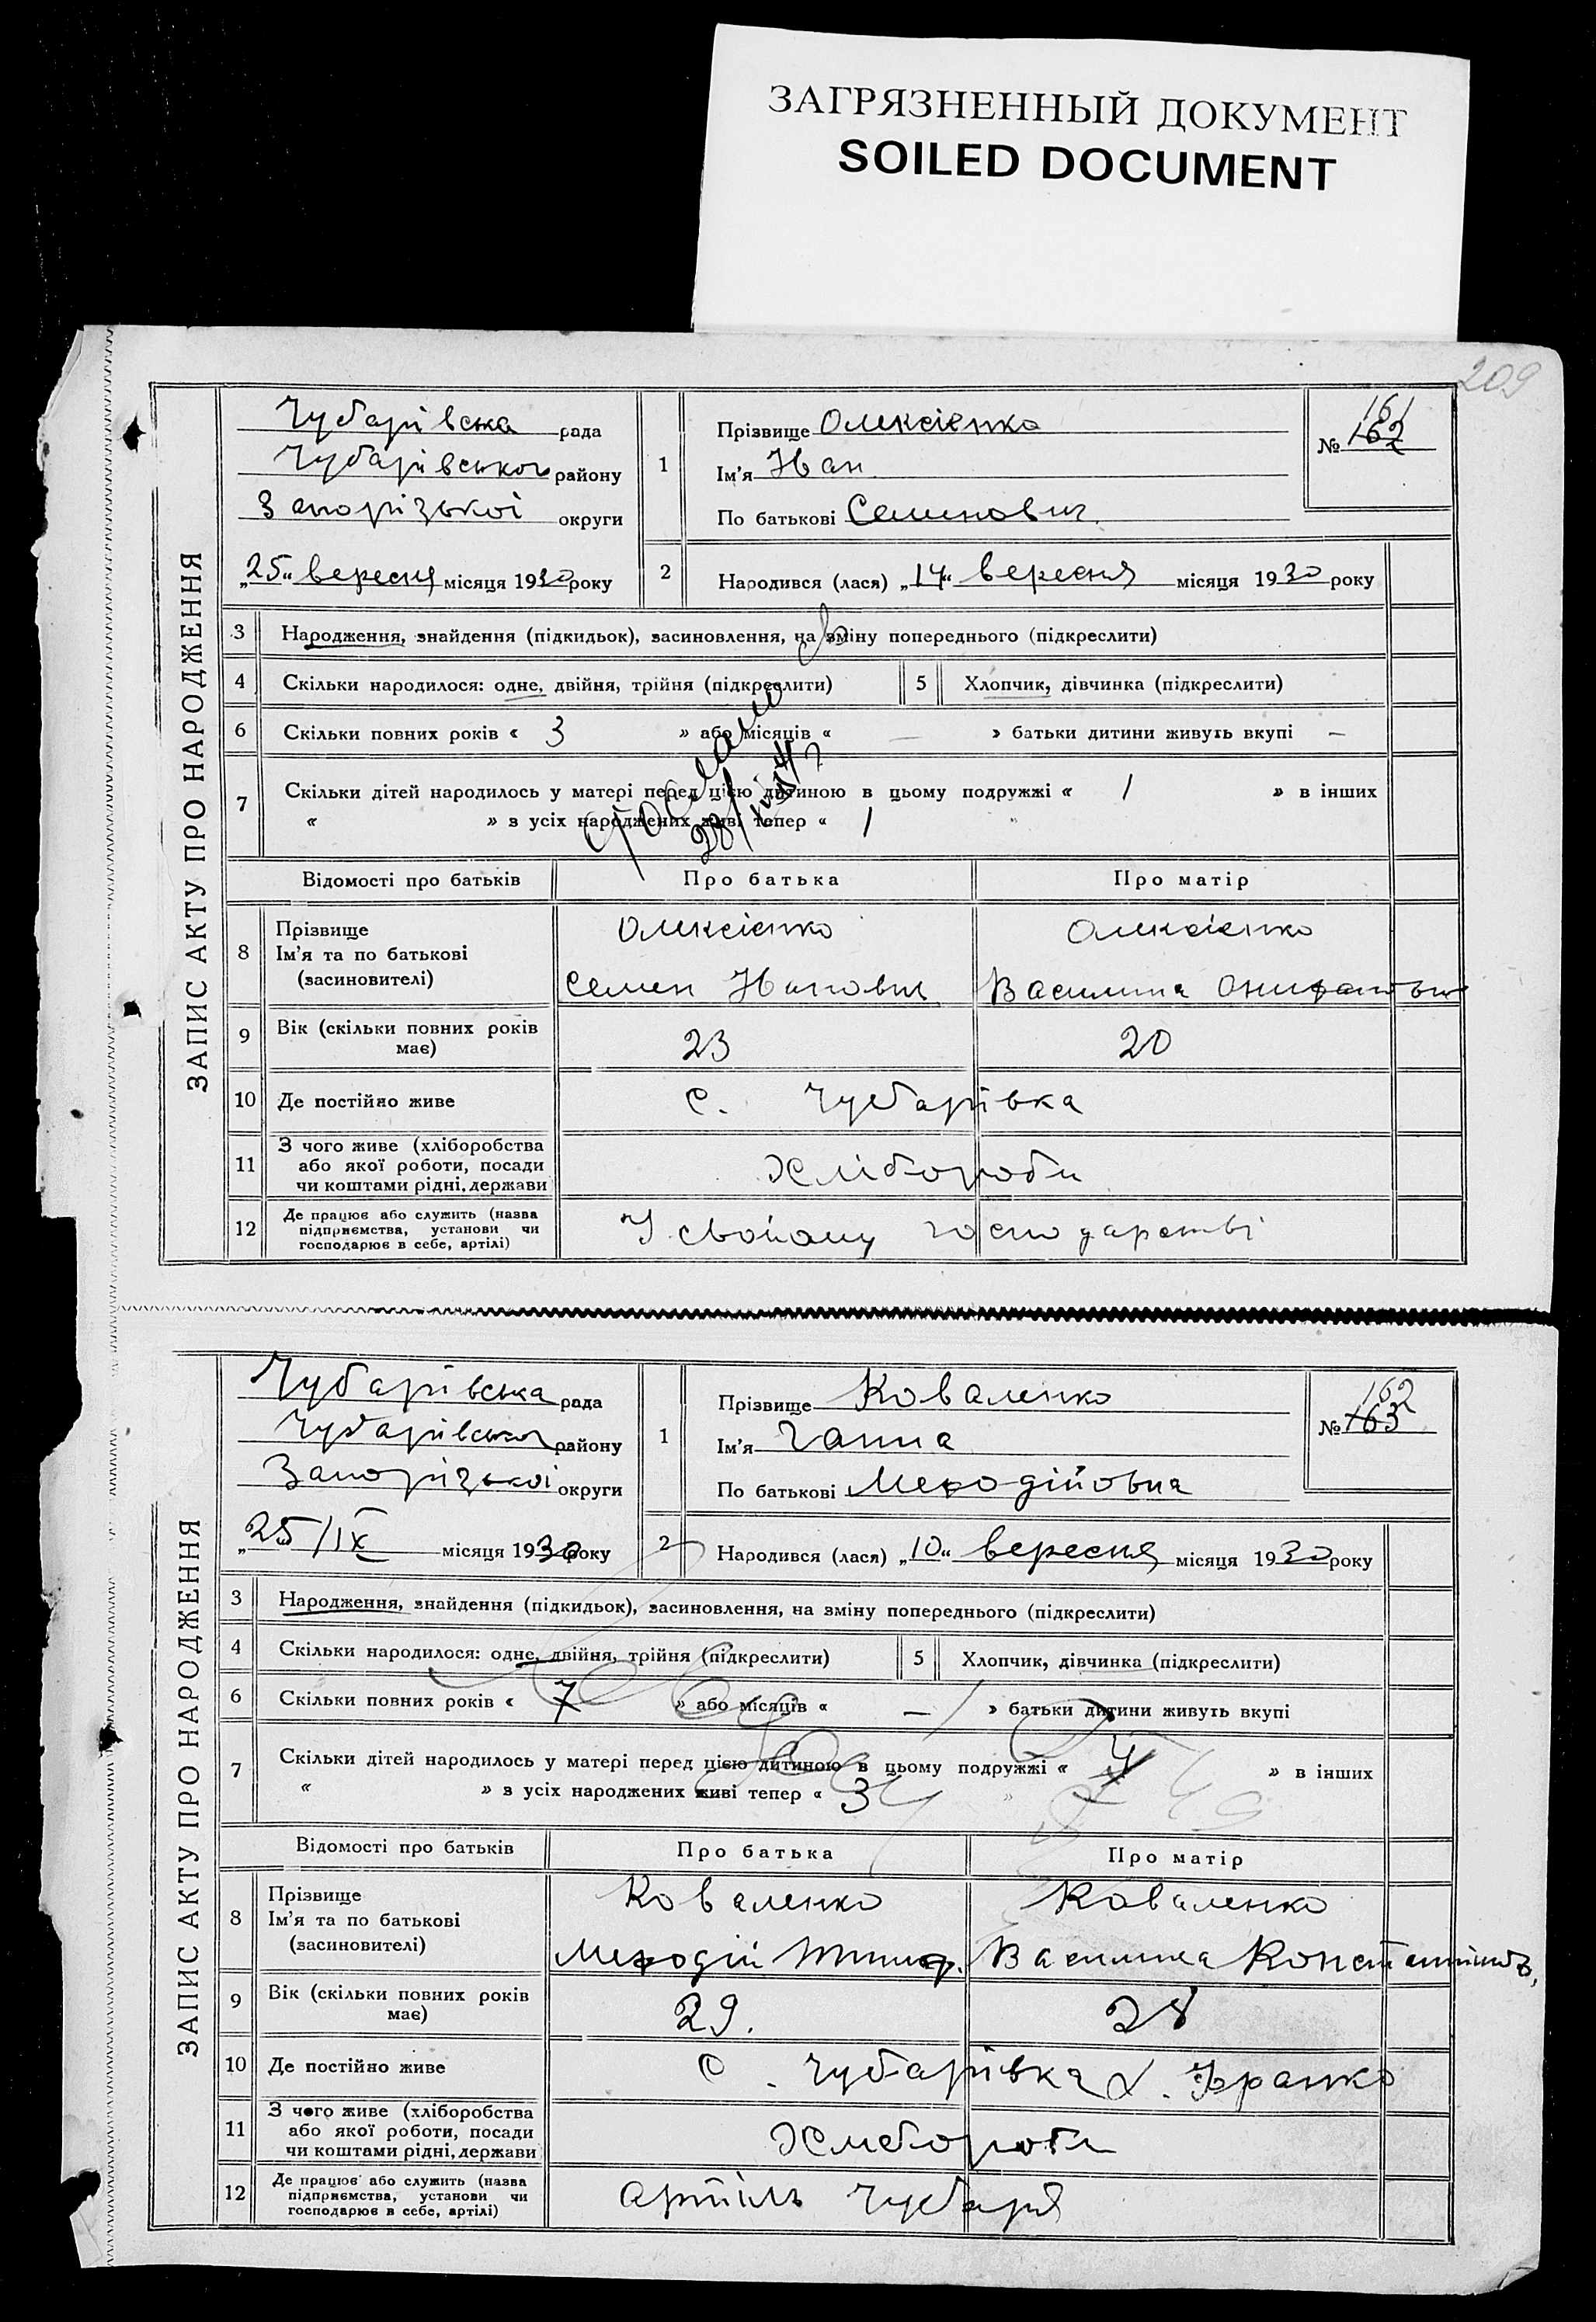 ЗАГРЯЗНЕННЫЙ ДОКУМЕНТ
SOILED DOCUMENT
209
ЗАПИС АКТУ ПРО НАРОДЖЕННЯ
Чубарівська рада
Чубарівського району
Запорізької округи
„25“ вересня місяця 1930 року
1
Прізвище Олексієнко
Ім'я Іван
По батькові Семенович
161
№ 162
2 Народився (лася) „14“ вересня місяця 1930 року
3 Народження, знайдення (підкидьок), засиновлення, на зміну попереднього (підкреслити)
4 Скільки народилося: одне, двійня, трійня (підкреслити) 5 Хлопчик, дівчинка (підкреслити)
6 Скільки повних років « 3 » або місяців « — » батьки дитини живуть вкупі —
7 Скільки дітей народилось у матері перед цією дитиною в цьому подружжі « 1 » в інших
« » з усіх народжених живі тепер « 1
Відомості про батьків Про батька Про матір
8 Прізвище Олексієнко Олексієнко
Ім'я та по батькові
(засиновителі) Семен Іванович Василина
9 Вік (скільки повних років має) 23 20
10 Де постійно живе с. Чубарівка
11 З чого живе (хліборобства
або якої роботи, посади
чи коштами рідні, держави Хлібороби
12 Де працює або служить (назва
підприємства, установи чи
господарює в себе, артілі) У свойому господарстві
ЗАПИС АКТУ ПРО НАРОДЖЕННЯ
Чубарівська рада
Чубарівського району
Запорізької округи
„25/IX місяця 1930 року
1
Прізвище Коваленко
Ім'я Ганна
По батькові Мефодійовна
162
№ 163
2 Народився (лася) „10“ вересня місяця 1930 року
3 Народження, знайдення (підкидьок), засиновлення, на зміну попереднього (підкреслити)
4 Скільки народилося: одне, двійня, трійня (підкреслити) 5 Хлопчик, дівчинка (підкреслити)
6 Скільки повних років « 7 » або місяців « — » батьки дитини живуть вкупі
7 Скільки дітей народилось у матері перед цією дитиною в цьому подружжі « » в інших
« » з усіх народжених живі тепер « 3
Відомості про батьків Про батька Про матір
8 Прізвище Коваленко Коваленко
Ім'я та по батькові
(засиновителі) Мефодій Василина
9 Вік (скільки повних років має) 29. 28
10 Де постійно живе с. Чубарівка Франко
11 З чого живе (хліборобства
або якої роботи, посади
чи коштами рідні, держави Хлібороби
12 Де працює або служить (назва
підприємства, установи чи
господарює в себе, артілі) Артіль Чубаря